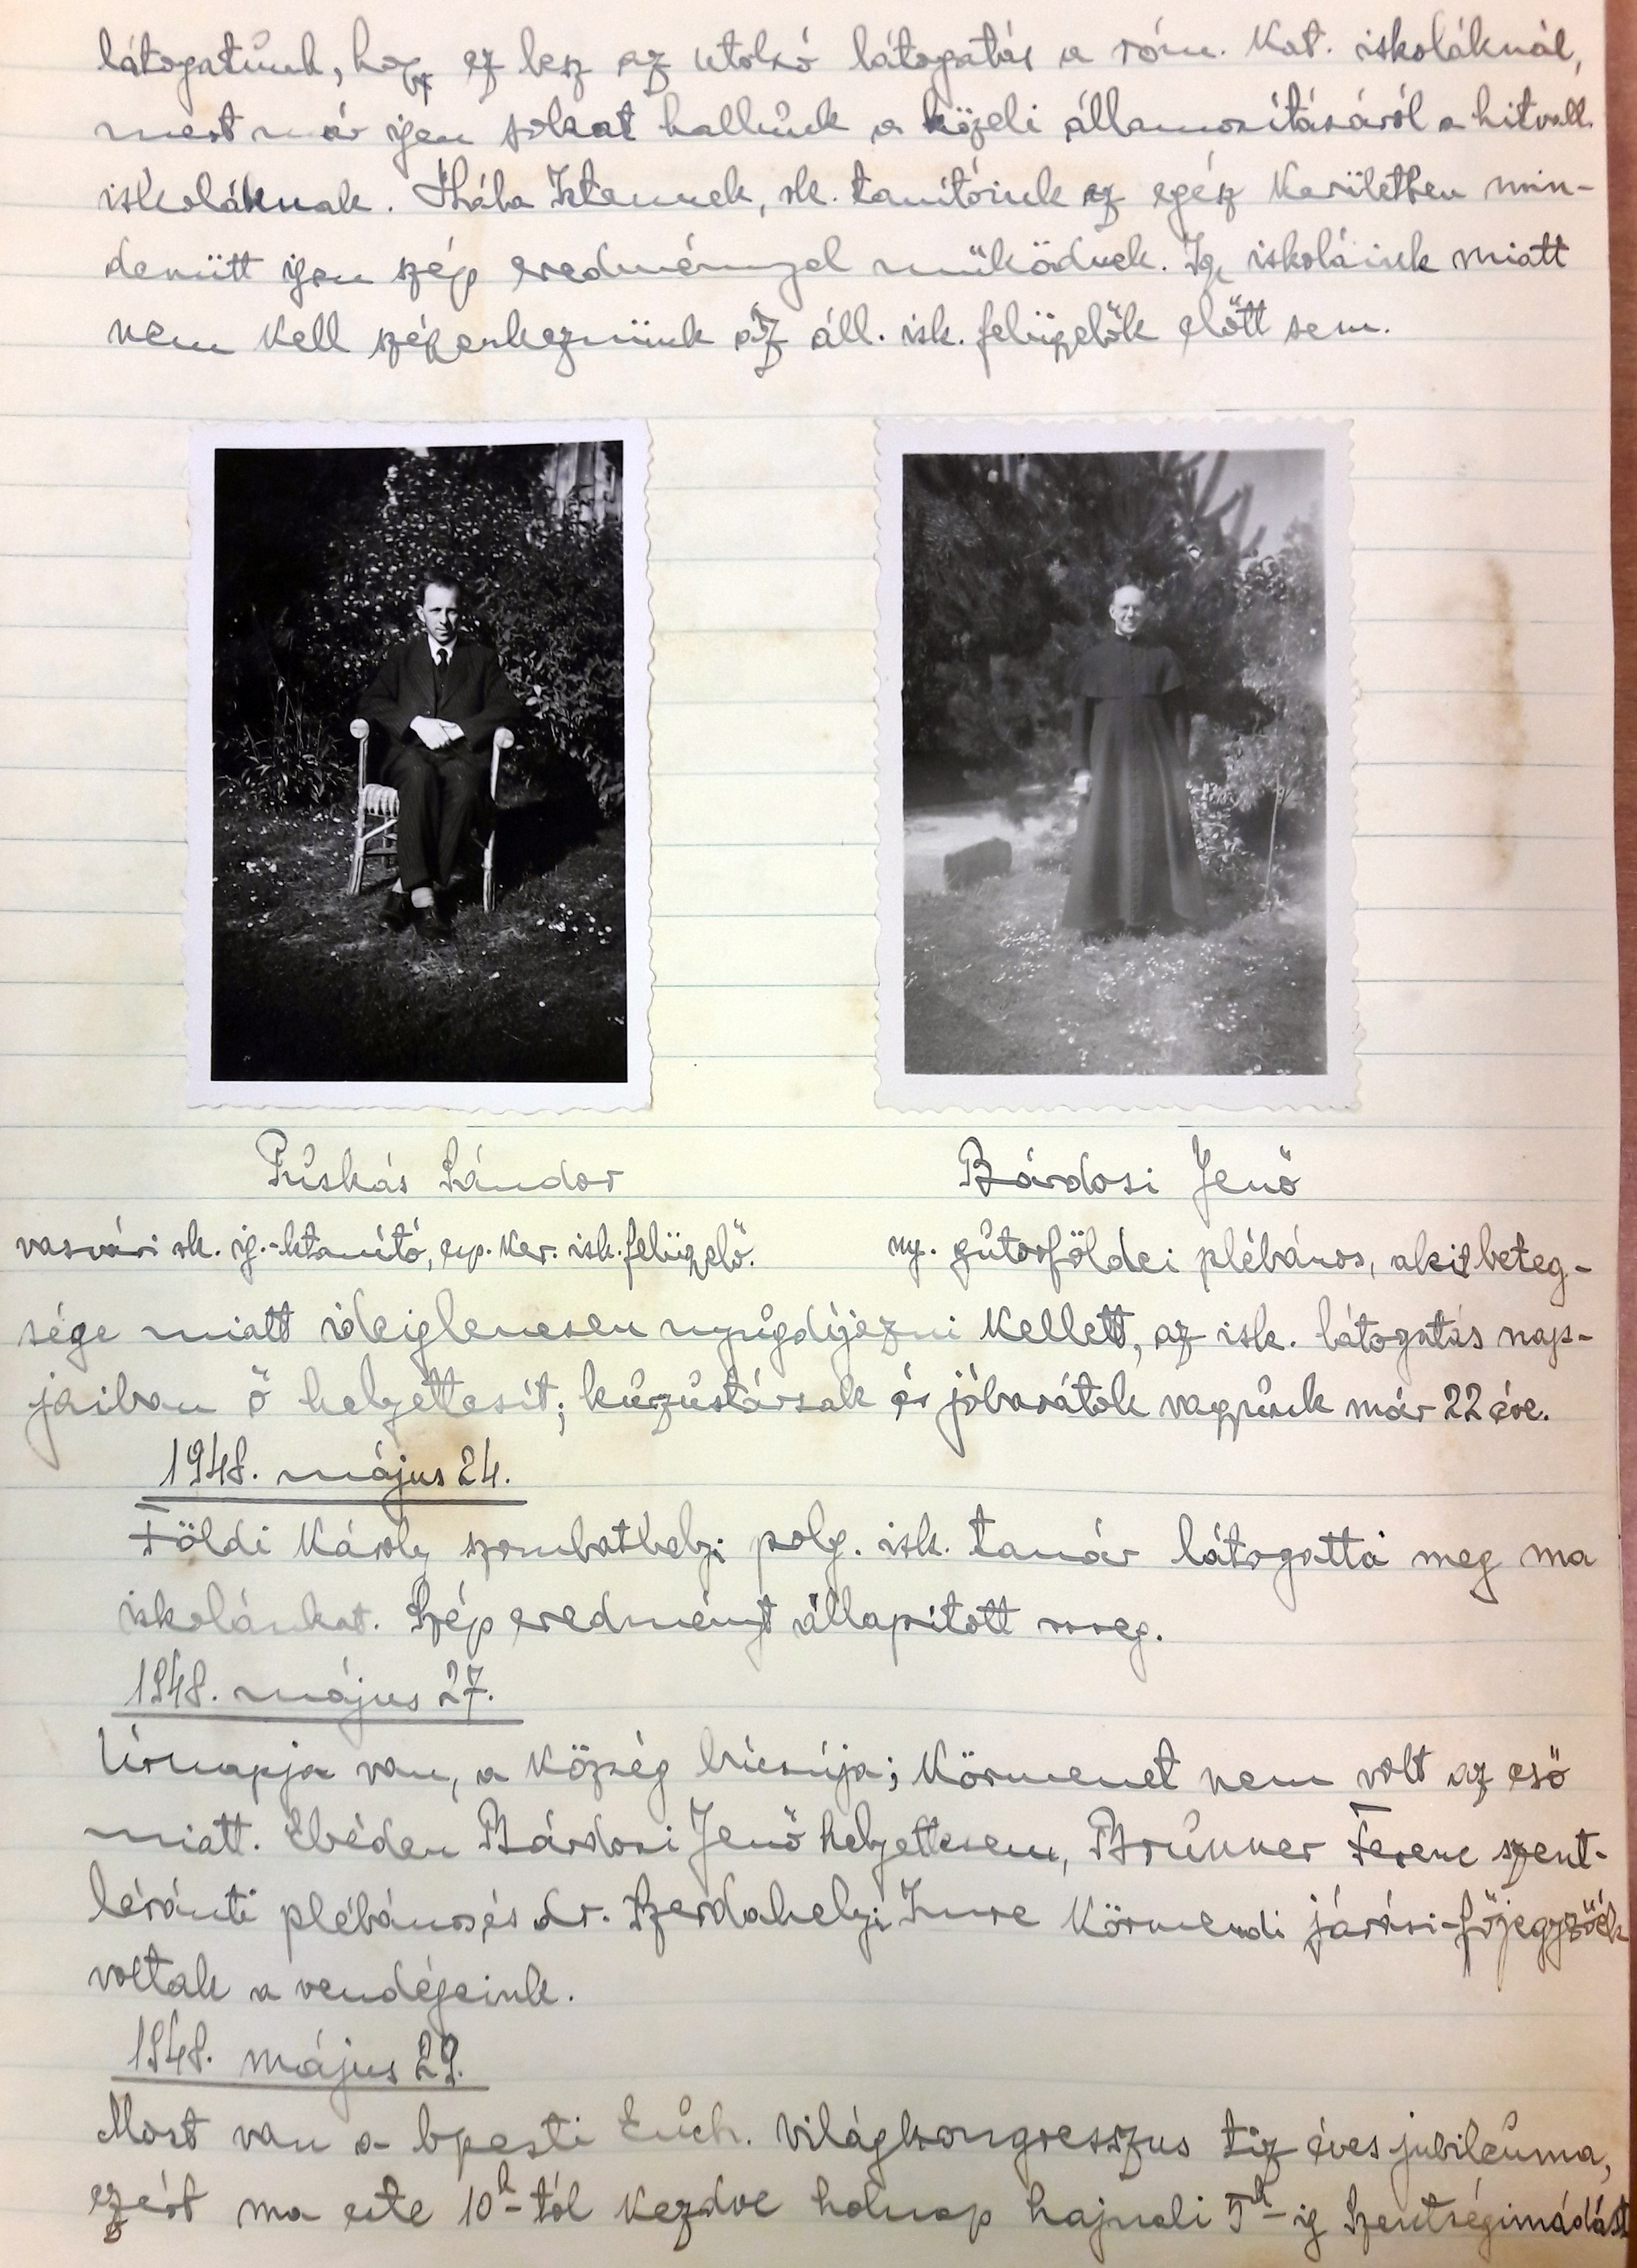 látogatunk, hogy ez lesz az utolsó látogatás a róm. Kat. iskoláknál,
mert már igen sokat hallunk a közeli államosításáról a hitvall.
iskoláknak. Hála Istennek, sk. tanítóink az egész Kerületben min-
denütt igen szép eredménnyel működnek. Így iskoláink miatt
nem Kell szégyenkeznünk az áll. isk. felügyelők előtt sem.
Puskás Sándor
Bárdosi Jenő
vasvári sk. ig.-ktanító, esp. Ker. isk. felügyelő.
ny. gutorföldei plébános, akit beteg-
sége miatt ideiglenesen nyugdíjazni Kellett, az isk. látogatás nap-
jaiban ő helyettesít; kurzustársak és jóbarátok vagyunk már 22 éve.
1948. május 24.
Földi Károly szombathelyi polg. isk. tanár látogatta meg ma
iskolánkat. Szép eredményt állapított meg.
1948. május 27.
Úrnapja van, a Község búcsúja; Körmenet nem volt az eső
miatt. Ebéden Bárdosi Jenő helyettesem, Brunner Ferenc szent-
léránti plébános és dr. Szerdahelyi Imre Körmendi járási-főjegyzőék
voltak a vendégeink.
1948. május 29.
Most van a bpesti Euch. világkongresszus tíz éves jubileuma,
ezért ma este 10h-tól Kezdve holnap hajnali 5h-ig Szentségimádást